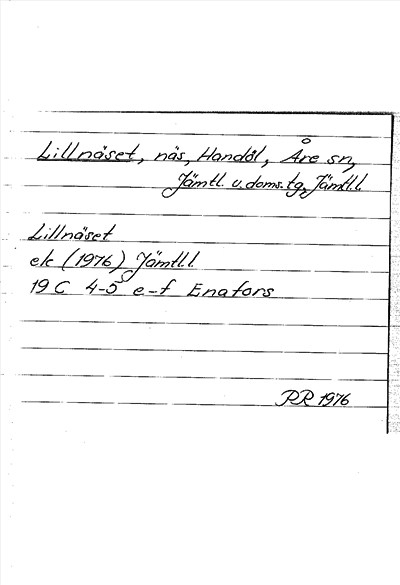 Lillnäset, näs, Handöl, Åre sn,
Jämtl. v. doms. tg, Jämtl. l
Lillnäset
ek (1976) Jämtl. l.
19 C 4-5 e-f Enafors
RR 1976